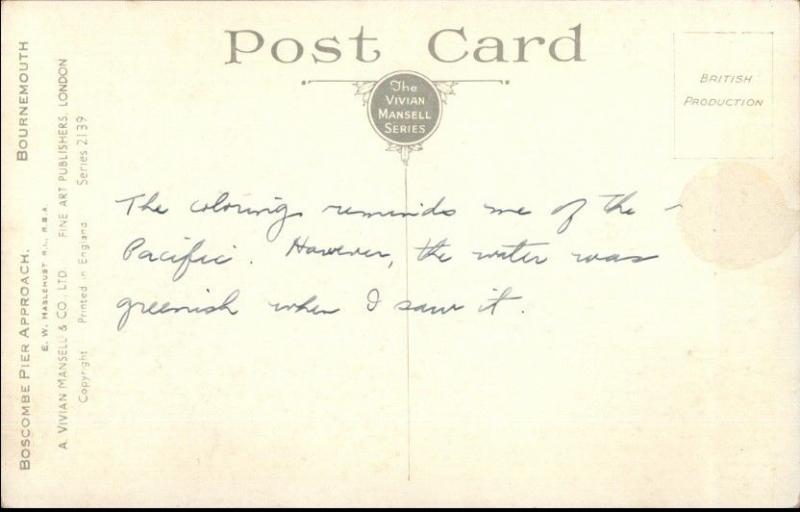 Post Card
The
VIVIAN
MANSELL
SERIES
BRITISH
PRODUCTION
The coloring reminds me of the -
Pacific. However, the water was
greenish when I saw it.
BOSCOMBE PIER APPROACH. BOURNEMOUTH
E. W. HASLEHUST R.I., R.B.A.
A. VIVIAN MANSELL & CO. LTD. FINE ART PUBLISHERS. LONDON
Copyright Printed in England Series 2139